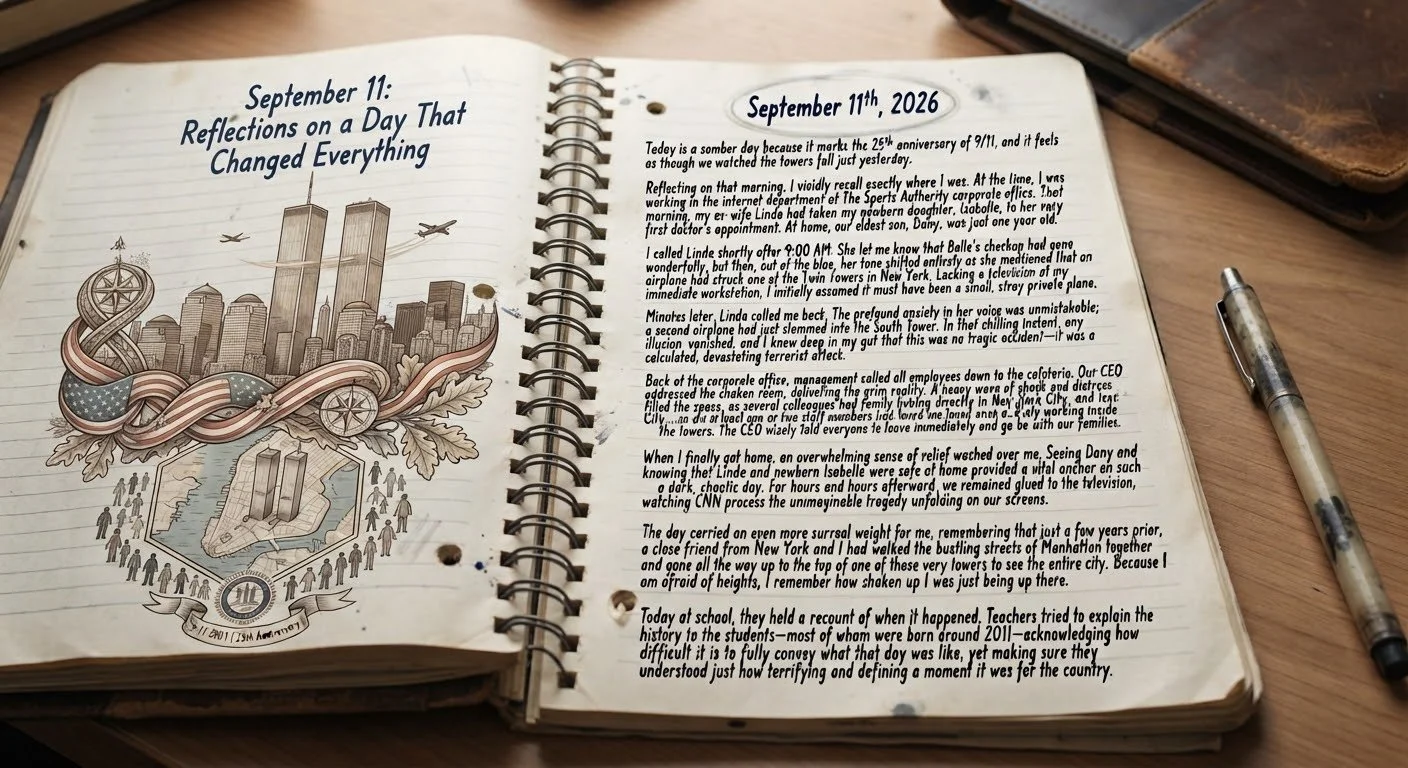 September 11:
Reflections on a Day That
Changed Everything
September 11th, 2026
Tedey is a somber day because it marks the 25th anniversary of 9/11, and it feels
as though we watched the towers fall just yesterday.
Reflecting on that morning, I vividly recall exectly where I wes. At the time, I was
working in the internet department of The Sperts Authority corporate offics. That
morning, my ex-wife Linde had taken my newbern doaghler, to her
first doctor's appointment. At home, our eldest son, Dany, was just one year old.
I called Linde shortly after 9:00 AM. She let me know that Balle's checkup had gone
wonderfully, but then, out of the blue, her tone shifted entirely as she mentioned that an
airplane had struck one of the Twin Towers in New York. Lacking a television at my
immediate workstation, I initially assumed it must have been a small, stray private plane.
Minutes later, Linda called me beck. The prefound anxiety in her voice was unmistakable;
a second airplane had just slemmed into the South Tower. In thet chilling instent, any
illusion vanished, and I knew deep in my gut that this was no tragic accident—it was a
calculated, devesteting terrorist atteck.
Back at the corporele office, management called all employees down to the cafeteria. Our CEO
addressed the chaken reem, delivering the grim reality. A heavy of shock and
filled the as several colleagues had family directly in City, and
City at least staff members working inside
the towers. The CEO wisely told everyone to leave immediately and go be with our families.
When I finally got home, an overwhelming sense of relief weched over me. Seeing Dany and
knowing thet Linde and newbern Isebelle were sefe at home provided a vital anchor on such
a dark, chootic day. For hours end hours afterward, we remained glued to the television,
watching CNN process the unimeginable tragedy unfolding on our screens.
The day carried an even more surreal weight for me, remembering that just a few years prior,
a close friend from New York and I had walked the bustling streets of Manhattan together
and gone all the way up to the top of one of these very towers to see the entire city. Because I
am afraid of heights, I remember how shaken up I was just being up there.
Today at school, they held a recount of when it happened. Teachers tried to explain the
history to the students—most of wham were born around 2011—acknowledging how
difficult it is to fully convey what that day was like, yet making sure they
understood just how terrifying and defining a moment it wes fer the country.